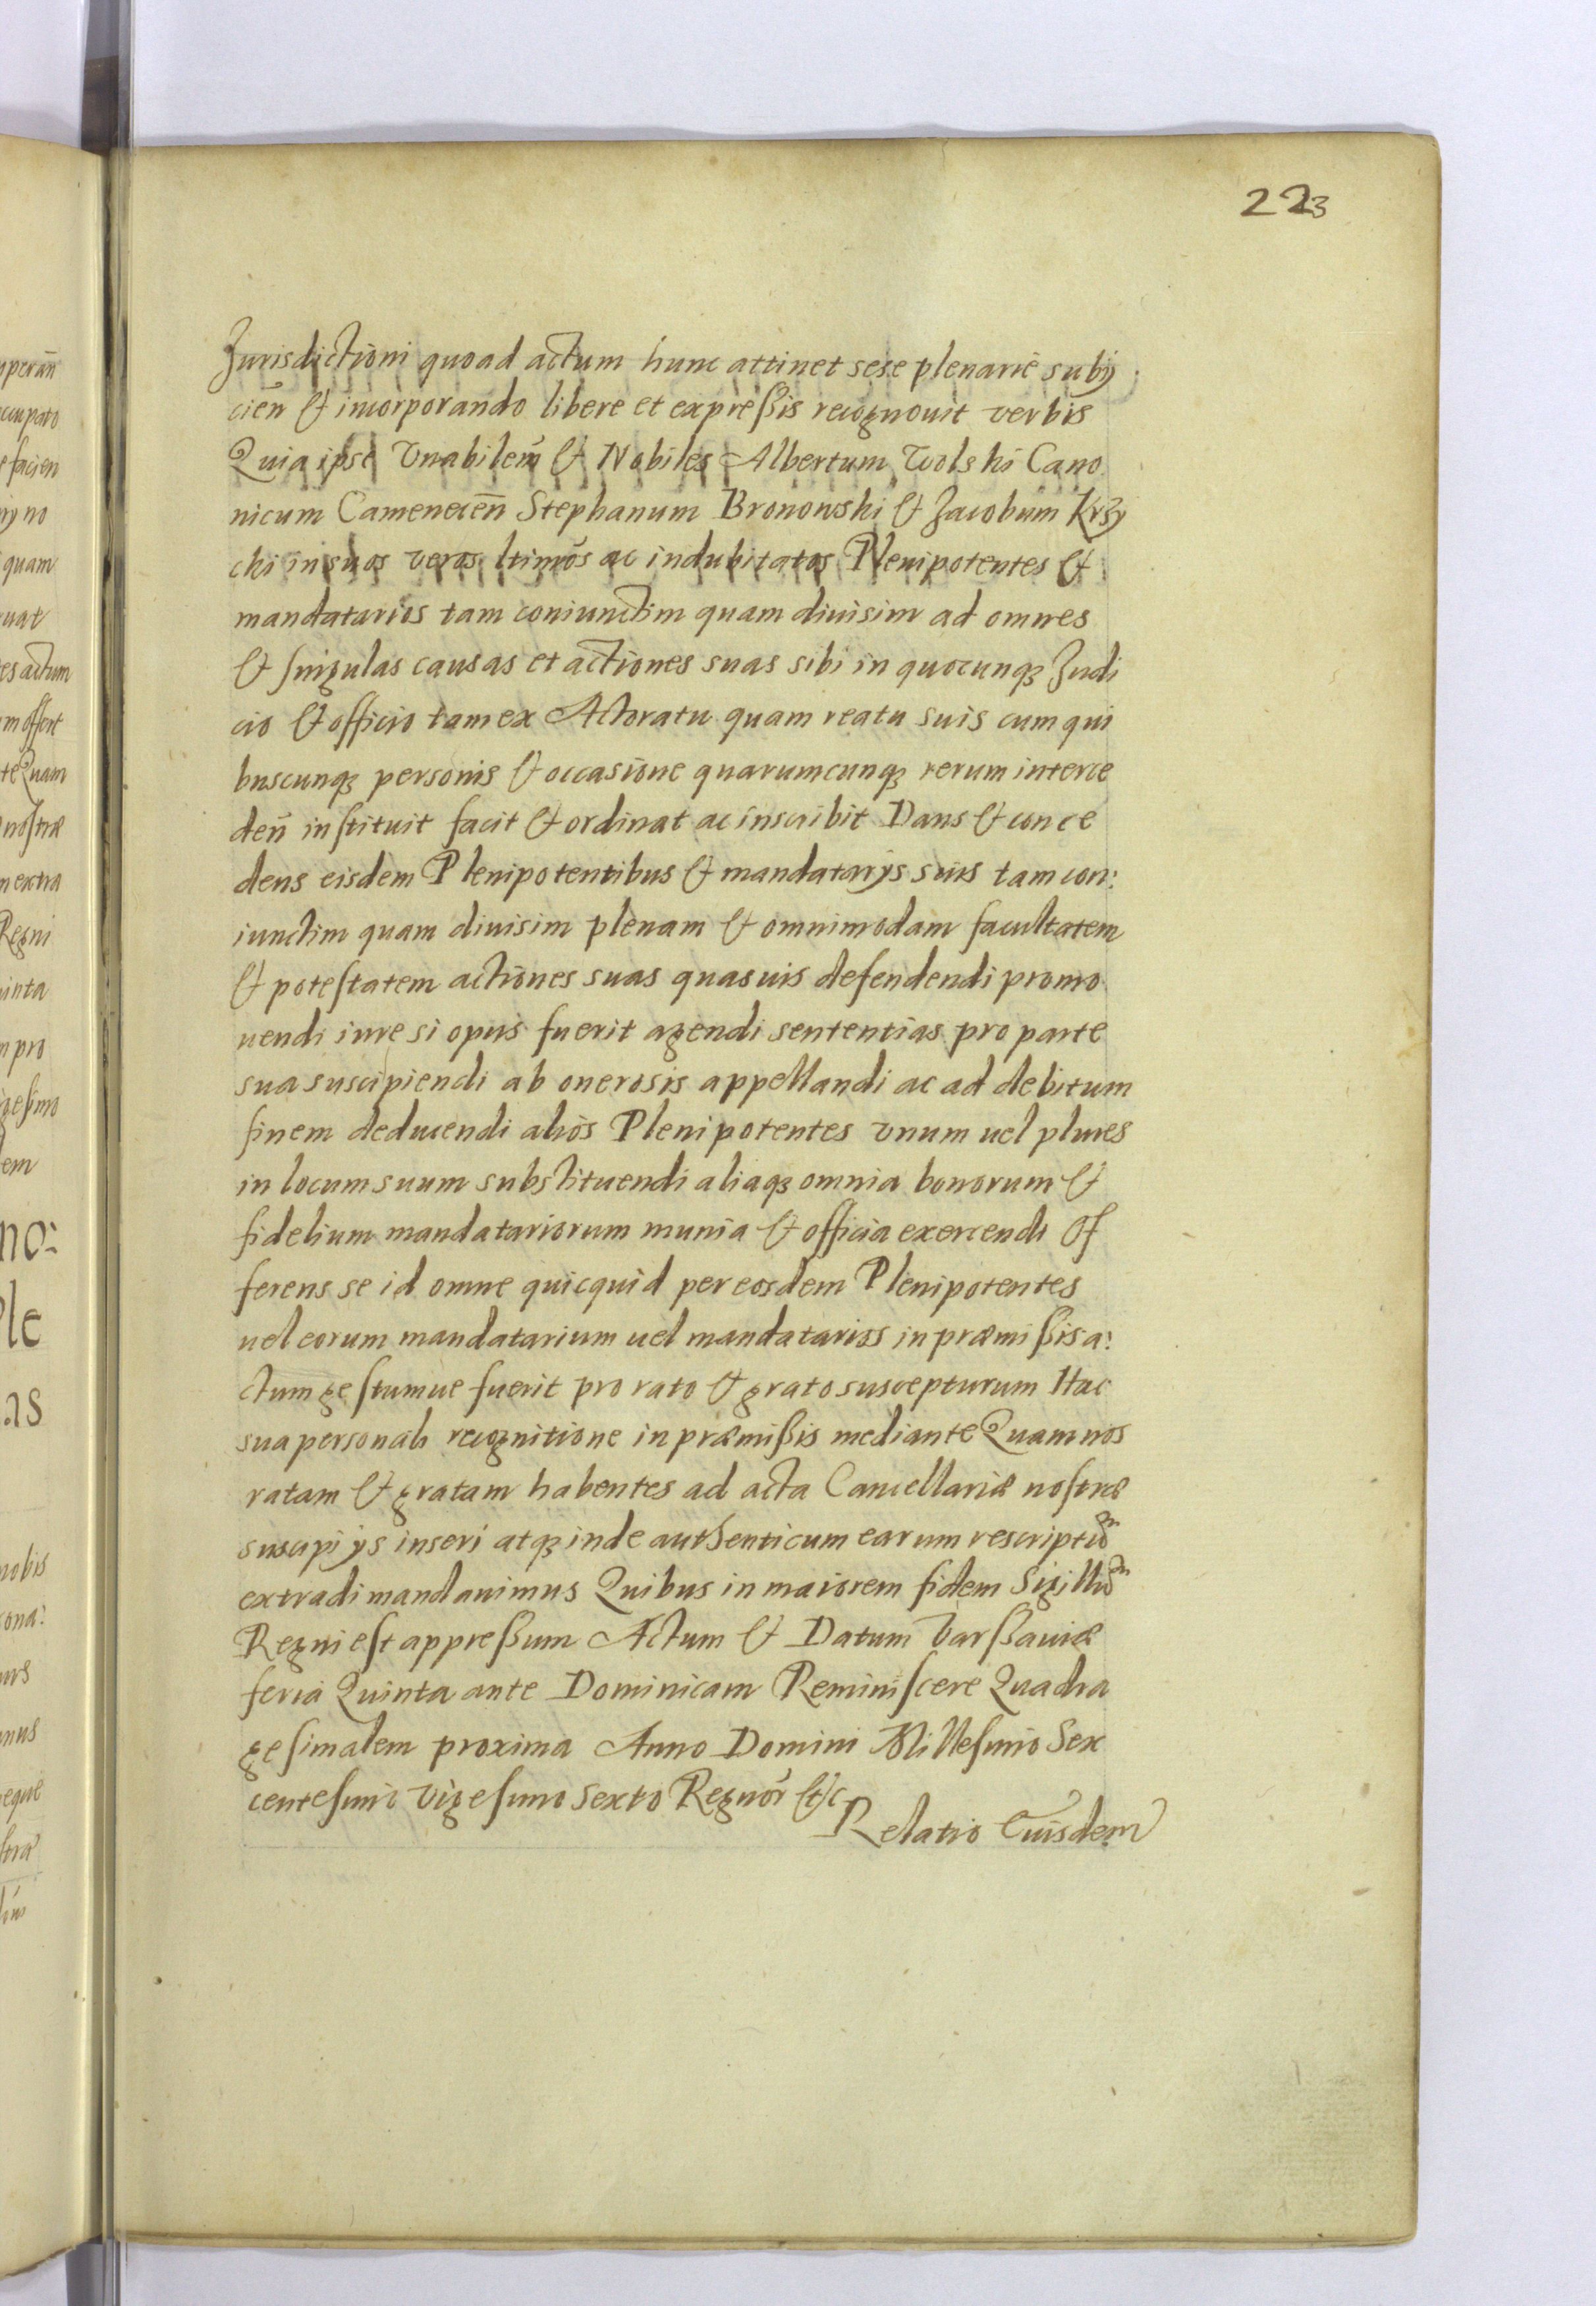 223
Jurisdictioni quoad actum hunc attinet sese plenarie subij
cien̄ & incorporando libere et expreßis recognouit verbis
Quia ipse Vnabilem̄ & Nobiles Albertum Wolski Cano
nicum Camenecen̄ Stephanum Bronowski & Jacobum Krzy
cki in suos veros ltimos ac indubitatos Plenipotentes &
mandatarios tam coniunctim quam diuisim ad omnes
& singulas causas et actiones suas sibi in quocunqꝫ Judi
cio & officio tam ex Actoratu quam reatu suis cum qui
buscunqꝫ personis & occasione quarumcunqꝫ rerum interce
den̄ instituit facit & ordinat ac inscribit Dans & conce
dens eisdem Plenipotentibus & mandatarijs suis tam con:
iunctim quam diuisim plenam & omnimodam facultatem
& potestatem actiones suas quasuis defendendi promo
uendi iure si opus fuerit agendi sententias pro parte
sua suscipiendi ab onerosis appellandi ac ad debitum
finem deducendi alios Plenipotentes vnum uel plures
in locum suum substituendi aliaqꝫ omnia bonorum &
fidelium mandatariorum munia & officia exercendi Of
ferens se id omne quicquid per eosdem Plenipotentes
uel eorum mandatarium uel mandatarios in præmißis a:
ctum gestumue fuerit pro rato & grato suscepturum Hac
sua personali recognitione in præmißis mediante Quam nos
ratam & gratam habentes ad acta Cancellariæ nostræ
suscipi ijs inseri atqꝫ inde authenticum earum rescriptum
extradi mandauimus Quibus in maiorem fidem Sigillum
Regni est appreßum Actum & Datum Varßauiæ
feria Quinta ante Dominicam Reminiscere Quadra
gesimalem proxima Anno Domini Millesimo Sex
centesimo vigesimo Sexto Regnor̄ &c
Relatio Eiusdem